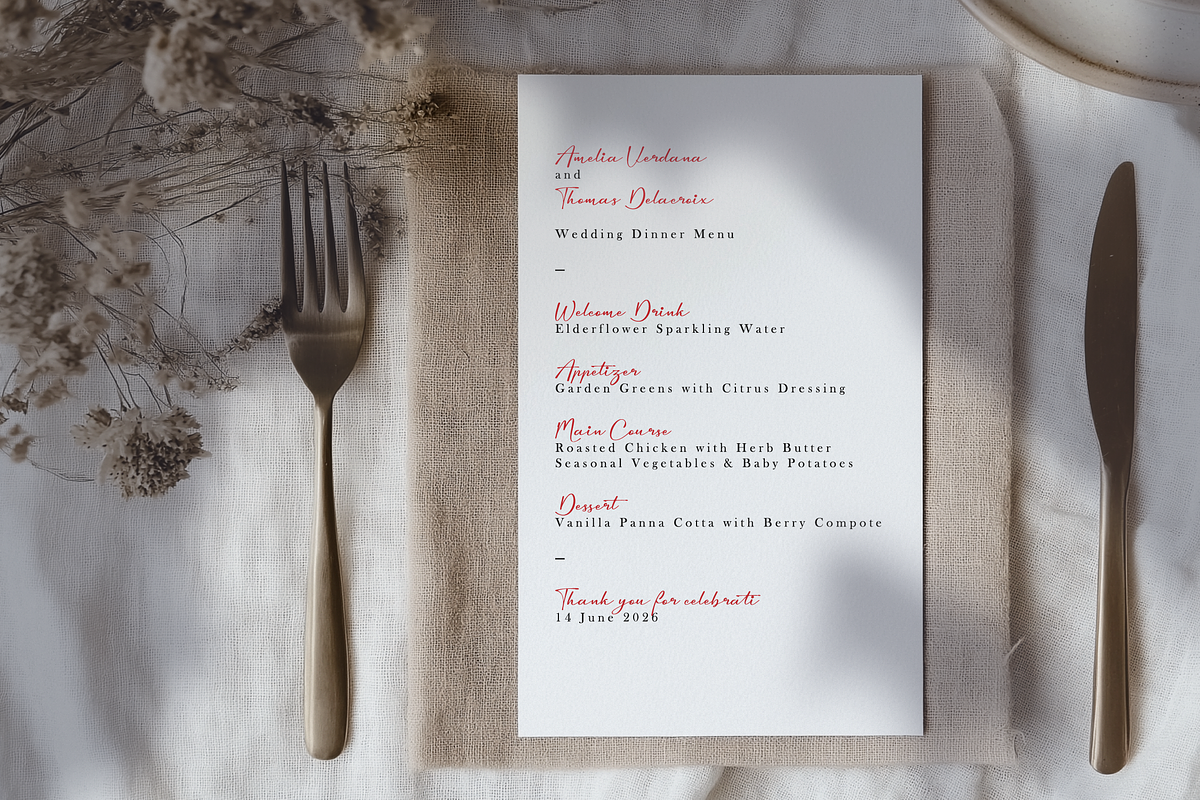 Amelia Verdana
and
Thomas Delacroix
Wedding Dinner Menu
–
Welcome Drink
Elderflower Sparkling Water
Appetizer
Garden Greens with Citrus Dressing
Main Course
Roasted Chicken with Herb Butter
Seasonal Vegetables & Baby Potatoes
Dessert
Vanilla Panna Cotta with Berry Compote
–
Thank you for celebrati
14 June 2026